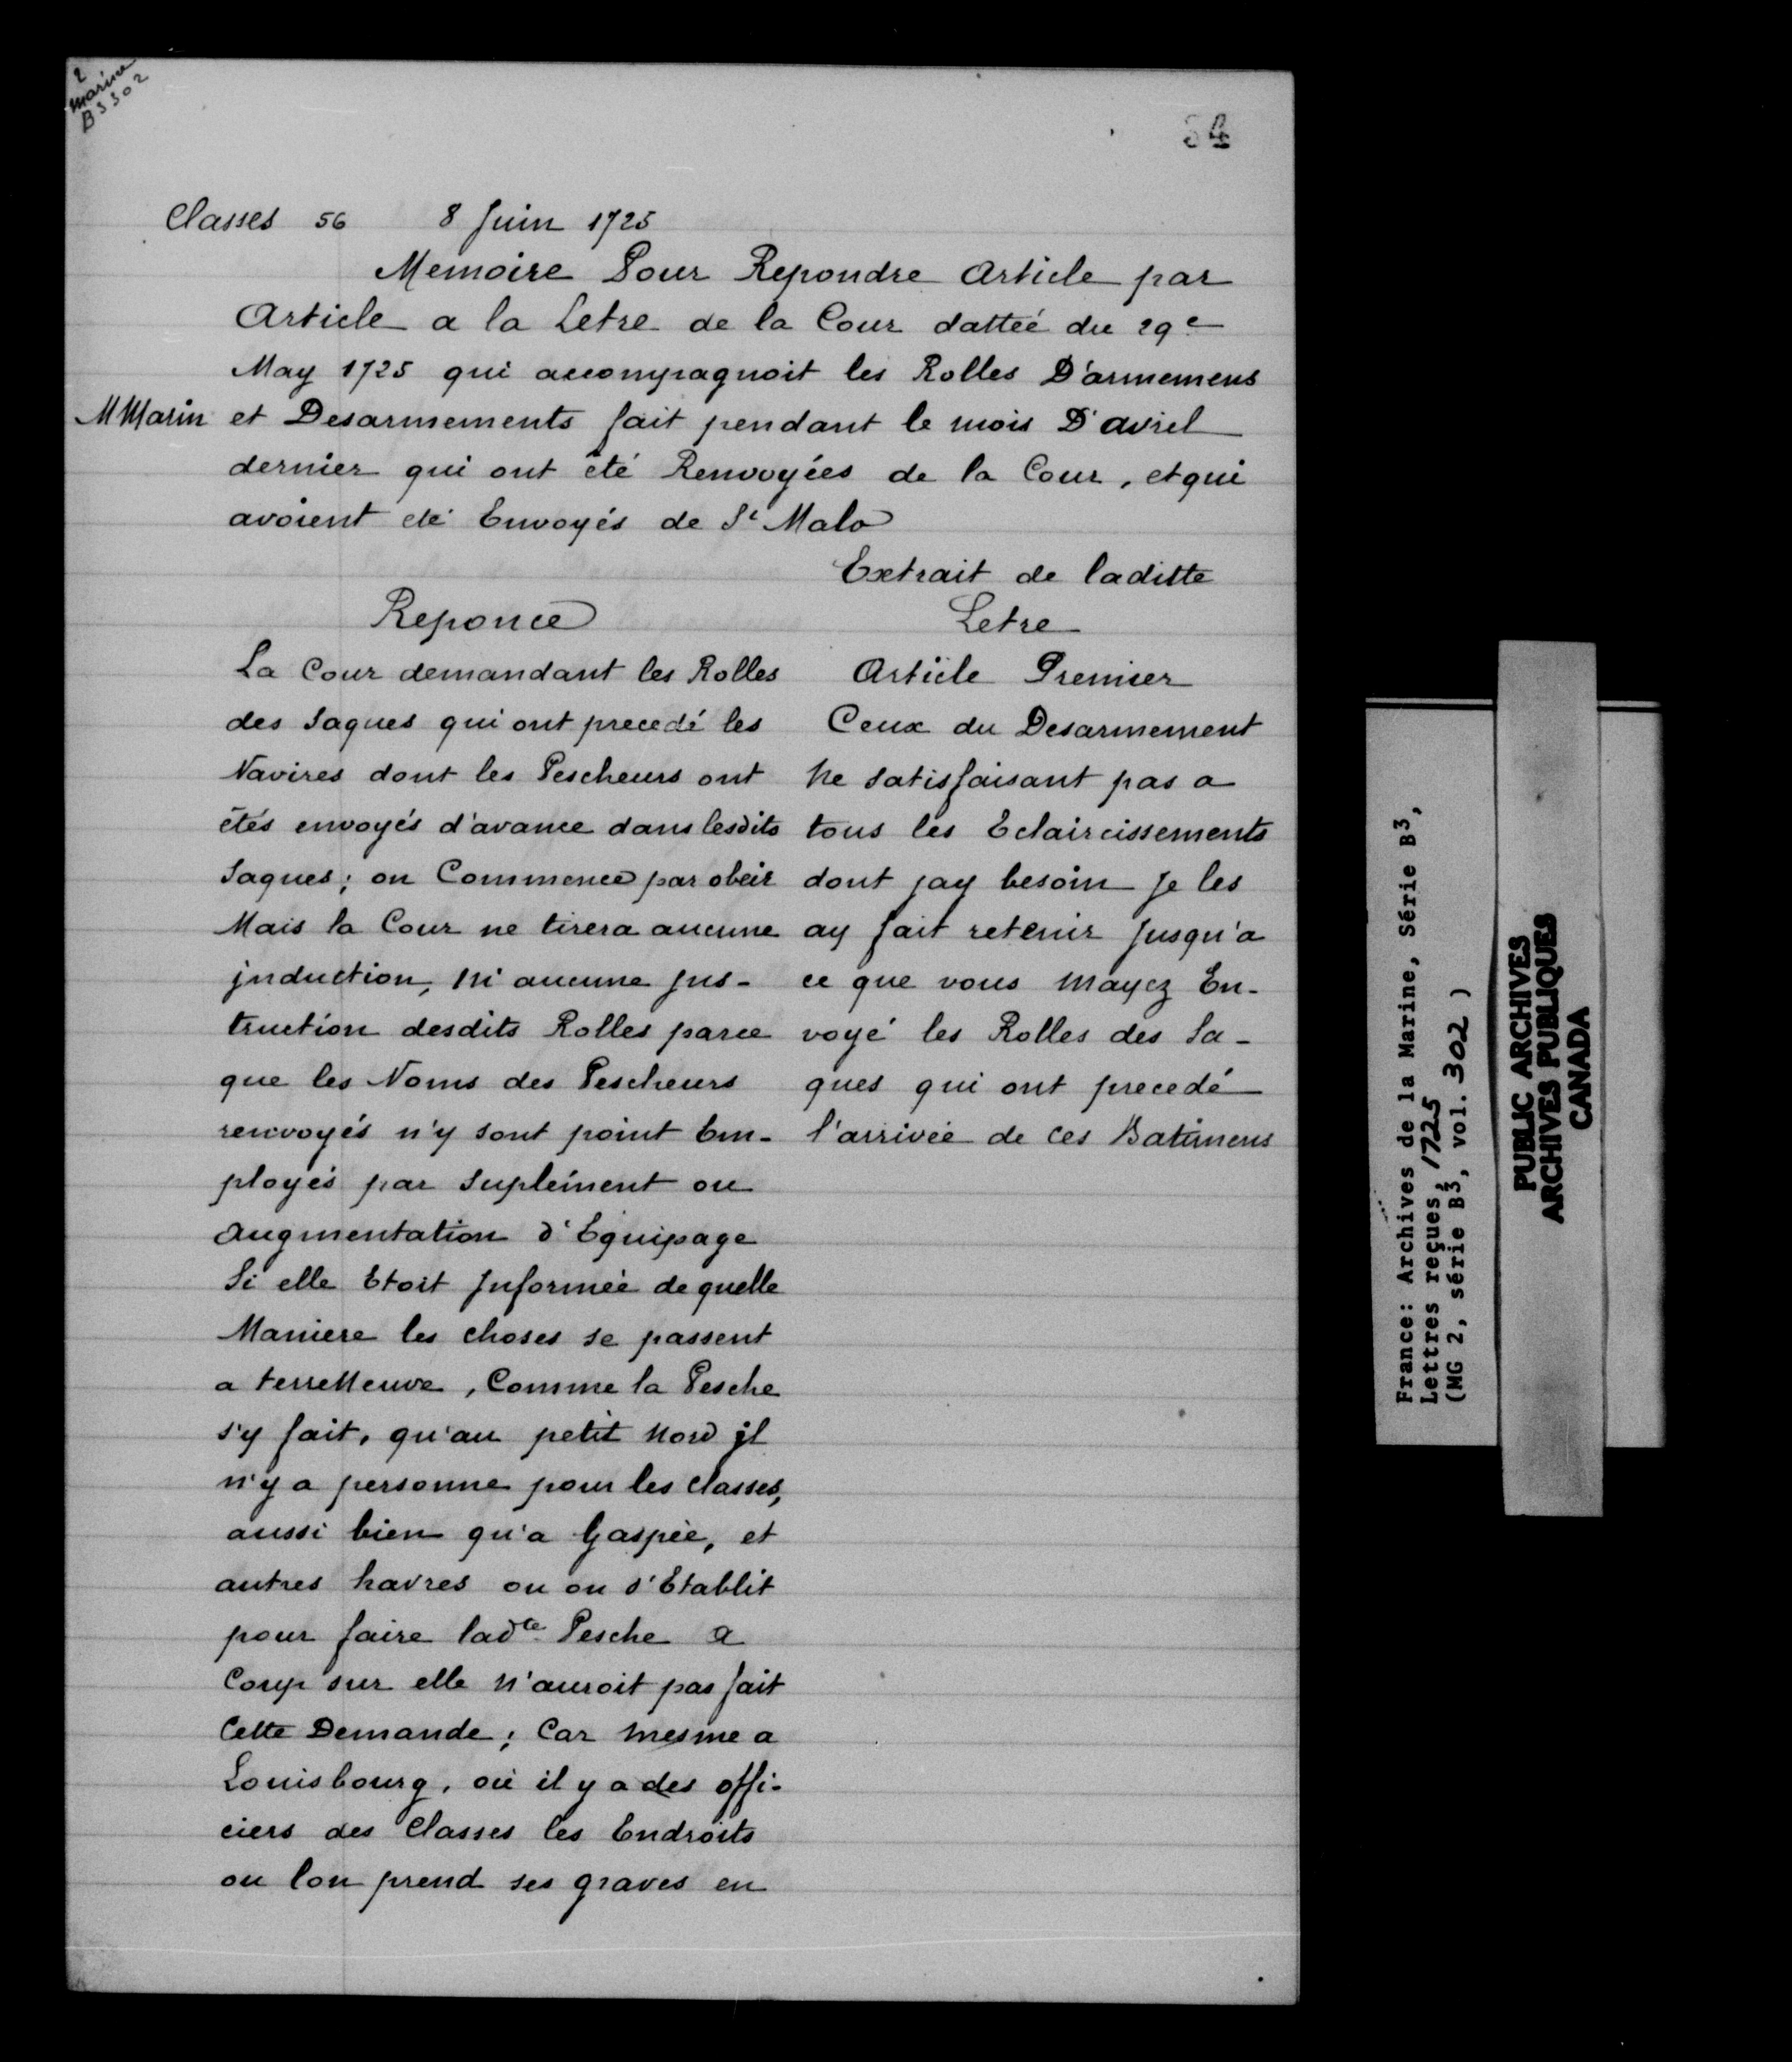 2
Marine
B3 302
34
Classes 56 8 Juin 1725
Memoire Pour Repondre Article par
Article a la Letre de la Cour dattée du 29e
May 1725 qui accompagnoit les Rolles D'armemens
M Marin et Desarmements fait pendant le mois D'avril
dernier qui ont été Renvoyées de la Cour, et qui
avoient eté Envoyés de St Malo
Reponce
La Cour demandant les Rolles
des Saques qui ont precedé les
Navires dont les Pescheurs ont
étés envoyés d'avance dans lesdits
Saques; on Commence par obeir
Mais la Cour ne tirera aucune
jnduction, ni aucune jns-
truction desdits Rolles parce
que les Noms des Pescheurs
renvoyés n'y sont point Em-
ployés par Suplément ou
augmentation d'Equipage
Si elle Etoit Jnformée de quelle
Maniere les choses se passent
a terreNeuve, Comme la Pesche
s'y fait, qu'au petit Nord jl
n'y a personne pour les classes,
aussi bien qu'a Gaspée, et
autres havres ou on s'Etablit
pour faire ladte Pesche a
Coup sur elle n'auroit pas fait
Cette Demande; Car mesme a
Louisbourg, où il y a des offi-
ciers des Classes les Endroits
ou lon prend ses graves en
Extrait de laditte
Letre
Article Premier
Ceux du Desarmement
ne satisfaisant pas a
tous les Eclaircissements
dont jay besoin Je les
ay fait retenir Jusqu'a
ce que vous mayez En-
voyé les Rolles des Sa-
ques qui ont precedé
l'arrivée de ces Batimens
France: Archives de la Marine, Série B3,
Lettres reçues, 1725
(MG 2, série B3, vol. 302 )
PUBLIC ARCHIVES
ARCHIVES PUBLIQUES
CANADA